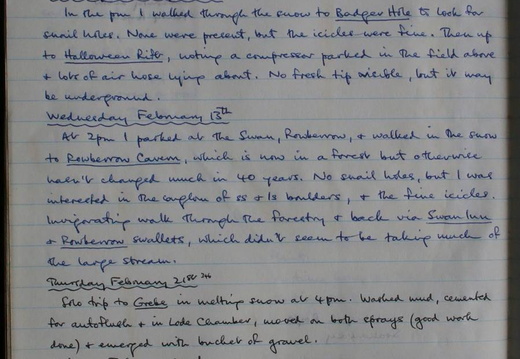 In the pm I walked through the snow to Badger Hole to look for
snail holes. None were present, but the icicles were fine. Then up
to Halloween Rift, noting a compressor parked in the field above
& lots of air hose lying about. No fresh tip visible, but it may
be underground.
Wednesday February 13th
At 2pm I parked at the Swan, Rowberrow, & walked in the snow
to Rowberrow Cavern, which is now in a forest but otherwise
hasn't changed much in 40 years. No snail holes, but I was
interested in the conglom of ss & ls boulders, & the fine icicles.
Invigorating walk through the forestry & back via Swan Inn
& Rowberrow swallets, which didn't seem to be taking much of
the large stream.
Thursday February 21st
Solo trip to Grebe in melting snow at 4pm. Washed mud, cemented
for autoflush & in Lode Chamber, moved on both sprays (good work
done) & emerged with bucket of gravel.